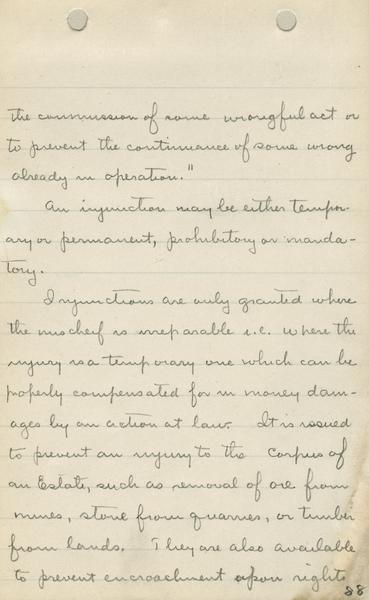 the commission of some wrongful act or
to prevent the continuance of some wrong
already in operation."
An injunction may be either tempor-
ary or permanent, prohibitory or manda-
tory.
Injunctions are only granted where
the mischeif is irreparable i.e. where the
injury is a temporary one which can be
properly compensated for in money dam-
ages by an action at law. It is issued
to prevent an injury to the corpus of
an Estate, such as removal of ore from
mines, stone from quarries, or timber
from lands. They are also available
to prevent encroachment upon rights
28